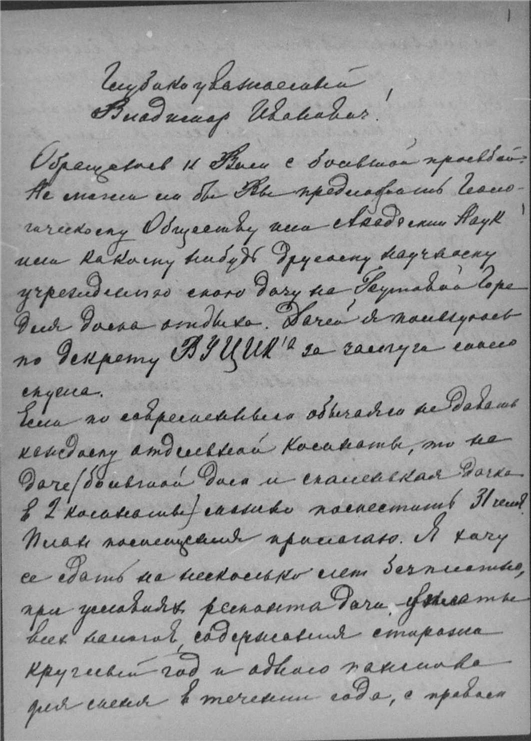 1
Глубокоуважаемый
Владимир Иванович!
Обращаюсь к Вам с большой просьбой.
Не можете ли бы Вы предложить Геоло-
гическому Обществу или Академии Наук
или какому нибудь другому научному
учреждению мою дачу на Горе
для дома отдыха. Дачей я пользуюсь
по декрету ВУЦИК'а за заслуги моего
мужа.
Если по современным обычаям не давать
каждому отдельной комнаты, то на
даче (большой дом и маленькая дачка
в 2 комнаты) можно поместить 31 челов.
План помещения прилагаю. Я хочу
ее сдать на несколько лет бесплатно,
при условиях ремонта дачи, уплаты
всех налогов, содержания сторожа
круглый год и одного пансиона
для меня в течении года, с правом